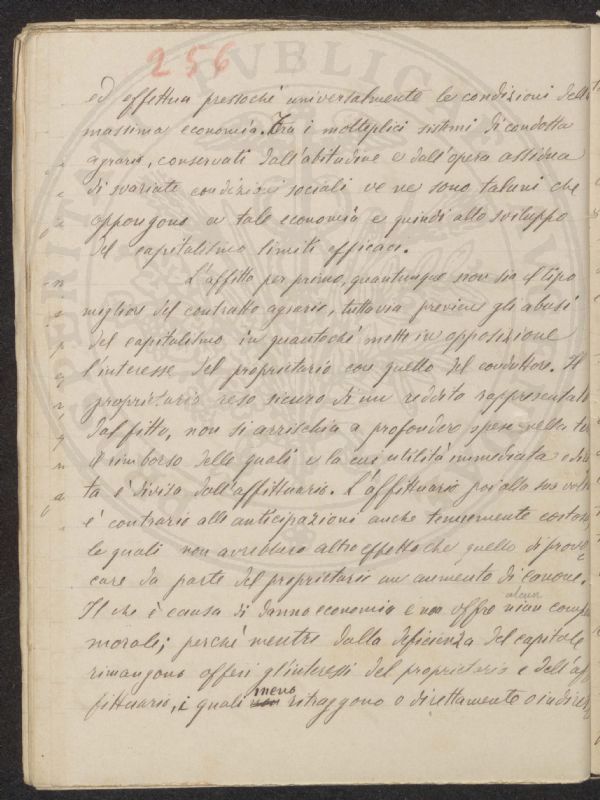 256
ed effettua pressoché universalmente le condizioni della
massima economia. Tra i molteplici sistemi di condotta
agraria, conservati dall'abitudine e dall'opera assidua
di svariate condizioni sociali ve ne sono taluni che
oppongono a tale economia e quindi allo sviluppo
del capitalismo limiti efficaci.
L'affitto per primo, quantunque non sia il tipo
migliore del contratto agrario, tuttavia previene gli abusi
del capitalismo in quantoché mette in opposizione
l'interesse del proprietario con quello del conduttore. Il
proprietario reso sicuro di un reddito rappresentato
dal fitto, non si arrischia a profondere spese nella
il rimborso delle quali e la cui utilità immediata
ta è divisa dall'affittuario. L'affittuario poi alla sua
è contrario alle anticipazioni anche tenuemente
le quali non avrebbero altro effetto che quello di provo
care da parte del proprietario un aumento di canone.
Il che è causa di danno economico e non offre alcun
morale; perché mentre dalla deficienza del capitale
rimangono offesi gl'interessi del proprietario e dell'af
fittuario, i quali meno ritraggono o direttamente o